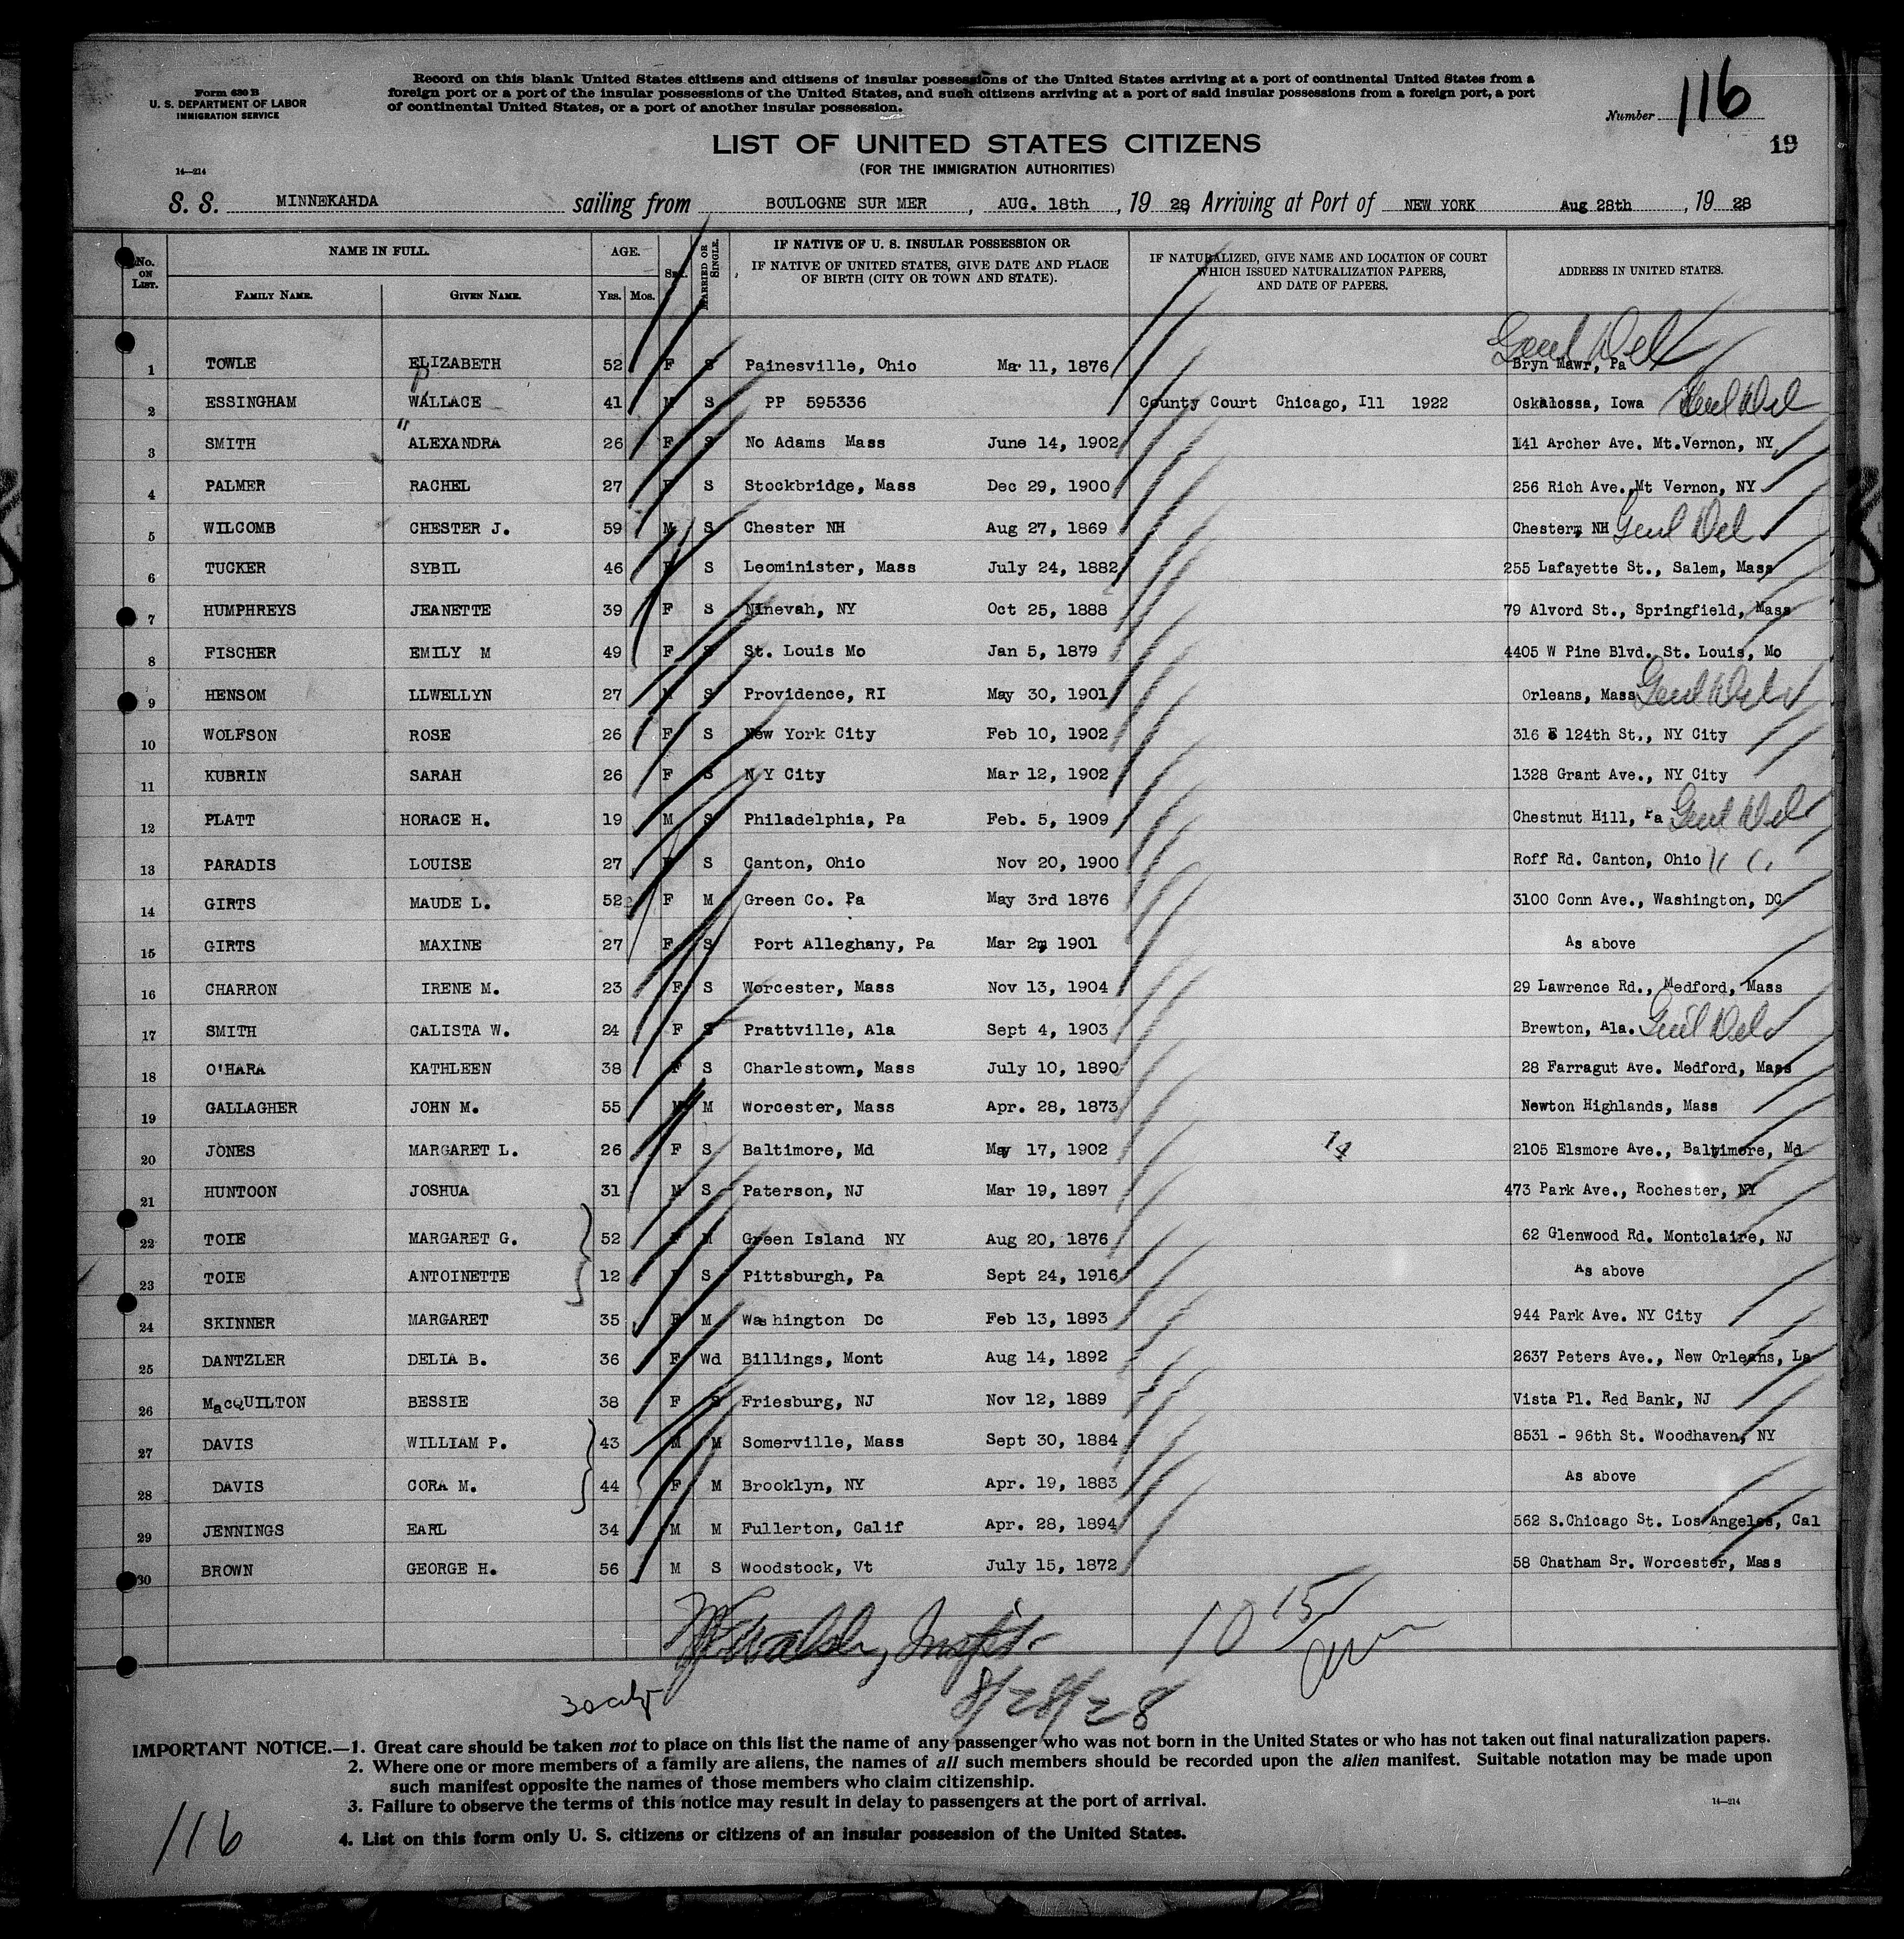 Form 630 B
U. S. DEPARTMENT OF LABOR
IMMIGRATION SERVICE
14—214
Record on this blank United States citizens and citizens of insular possessions of the United States arriving at a port of continental United States from a
foreign port or a port of the insular possessions of the United States, and such citizens arriving at a port of said insular possessions from a foreign port, a port
of continental United States, or a port of another insular possession.
Number 116
19
LIST OF UNITED STATES CITIZENS
(FOR THE IMMIGRATION AUTHORITIES)
S. S. MINNEKAHDA sailing from BOULOGNE SUR MER, AUG. 18th, 19 28, Arriving at Port of NEW YORK Aug 28th, 19 28
No. ON LIST. NAME IN FULL. AGE. SEX. MARRIED OR SINGLE. IF NATIVE OF U. S. INSULAR POSSESSION OR IF NATIVE OF UNITED STATES, GIVE DATE AND PLACE OF BIRTH (CITY OR TOWN AND STATE). IF NATURALIZED, GIVE NAME AND LOCATION OF COURT WHICH ISSUED NATURALIZATION PAPERS, AND DATE OF PAPERS. ADDRESS IN UNITED STATES.
FAMILY NAME. GIVEN NAME. YRS. MOS.
Genl Del
1 TOWLE ELIZABETH 52 F S Painesville, Ohio Mar 11, 1876 Bryn Mawr, Pa
2 ESSINGHAM WALLACE 41 M S PP 595336 County Court Chicago, Ill 1922 Oskalossa, Iowa Genl Del
3 SMITH ALEXANDRA 26 F S No Adams Mass June 14, 1902 141 Archer Ave. Mt.Vernon, NY
4 PALMER RACHEL 27 F S Stockbridge, Mass Dec 29, 1900 256 Rich Ave., Mt Vernon, NY
5 WILCOMB CHESTER J. 59 M S Chester NH Aug 27, 1869 Chester, NH Genl Del
6 TUCKER SYBIL 46 F S Leominister, Mass July 24, 1882 255 Lafayette St., Salem, Mass
7 HUMPHREYS JEANETTE 39 F S Ninevah, NY Oct 25, 1888 79 Alvord St., Springfield, Mass
8 FISCHER EMILY M 49 F S St. Louis Mo Jan 5, 1879 4405 W Pine Blvd. St. Louis, Mo
9 HENSOM LLWELLYN 27 M S Providence, RI May 30, 1901 Orleans, Mass Genl Del
10 WOLFSON ROSE 26 F S New York City Feb 10, 1902 316 E 124th St., NY City
11 KUBRIN SARAH 26 F S N Y City Mar 12, 1902 1328 Grant Ave., NY City
12 PLATT HORACE H. 19 M S Philadelphia, Pa Feb. 5, 1909 Chestnut Hill, Pa Genl Del
13 PARADIS LOUISE 27 F S Canton, Ohio Nov 20, 1900 Roff Rd. Canton, Ohio " "
14 GIRTS MAUDE L. 52 F M Green Co. Pa May 3rd 1876 3100 Conn Ave., Washington, DC
15 GIRTS MAXINE 27 F S Port Alleghany, Pa Mar 2, 1901 As above
16 CHARRON IRENE M. 23 F S Worcester, Mass Nov 13, 1904 29 Lawrence Rd., Medford, Mass
17 SMITH CALISTA W. 24 F S Prattville, Ala Sept 4, 1903 Brewton, Ala. Genl Del
18 O'HARA KATHLEEN 38 F S Charlestown, Mass July 10, 1890 28 Farragut Ave. Medford, Mass
19 GALLAGHER JOHN M. 55 M M Worcester, Mass Apr. 28, 1873 Newton Highlands, Mass
20 JONES MARGARET L. 26 F S Baltimore, Md May 17, 1902 14 2105 Elsmore Ave., Baltimore, Md
21 HUNTOON JOSHUA 31 M S Paterson, NJ Mar 19, 1897 473 Park Ave., Rochester, NY
22 TOIE MARGARET G. 52 F M Green Island NY Aug 20, 1876 62 Glenwood Rd. Montclaire, NJ
23 TOIE ANTOINETTE 12 F S Pittsburgh, Pa Sept 24, 1916 As above
24 SKINNER MARGARET 35 F M Washington Dc Feb 13, 1893 944 Park Ave. NY City
25 DANTZLER DELIA B. 36 F Wd Billings, Mont Aug 14, 1892 2637 Peters Ave., New Orleans, La
26 MacQUILTON BESSIE 38 F S Friesburg, NJ Nov 12, 1889 Vista Pl. Red Bank, NJ
27 DAVIS WILLIAM P. 43 M M Somerville, Mass Sept 30, 1884 8531 - 96th St. Woodhaven, NY
28 DAVIS CORA M. 44 F M Brooklyn, NY Apr. 19, 1883 As above
29 JENNINGS EARL 34 M M Fullerton, Calif Apr. 28, 1894 562 S.Chicago St. Los Angeles, Cal
30 BROWN GEORGE H. 56 M S Woodstock, Vt July 15, 1872 58 Chatham Sr. Worcester, Mass
Walsh, Inspt. 10 15 am
8/28/28
IMPORTANT NOTICE.—1. Great care should be taken not to place on this list the name of any passenger who was not born in the United States or who has not taken out final naturalization papers.
2. Where one or more members of a family are aliens, the names of all such members should be recorded upon the alien manifest. Suitable notation may be made upon
such manifest opposite the names of those members who claim citizenship.
3. Failure to observe the terms of this notice may result in delay to passengers at the port of arrival.
14—214
4. List on this form only U. S. citizens or citizens of an insular possession of the United States.
116